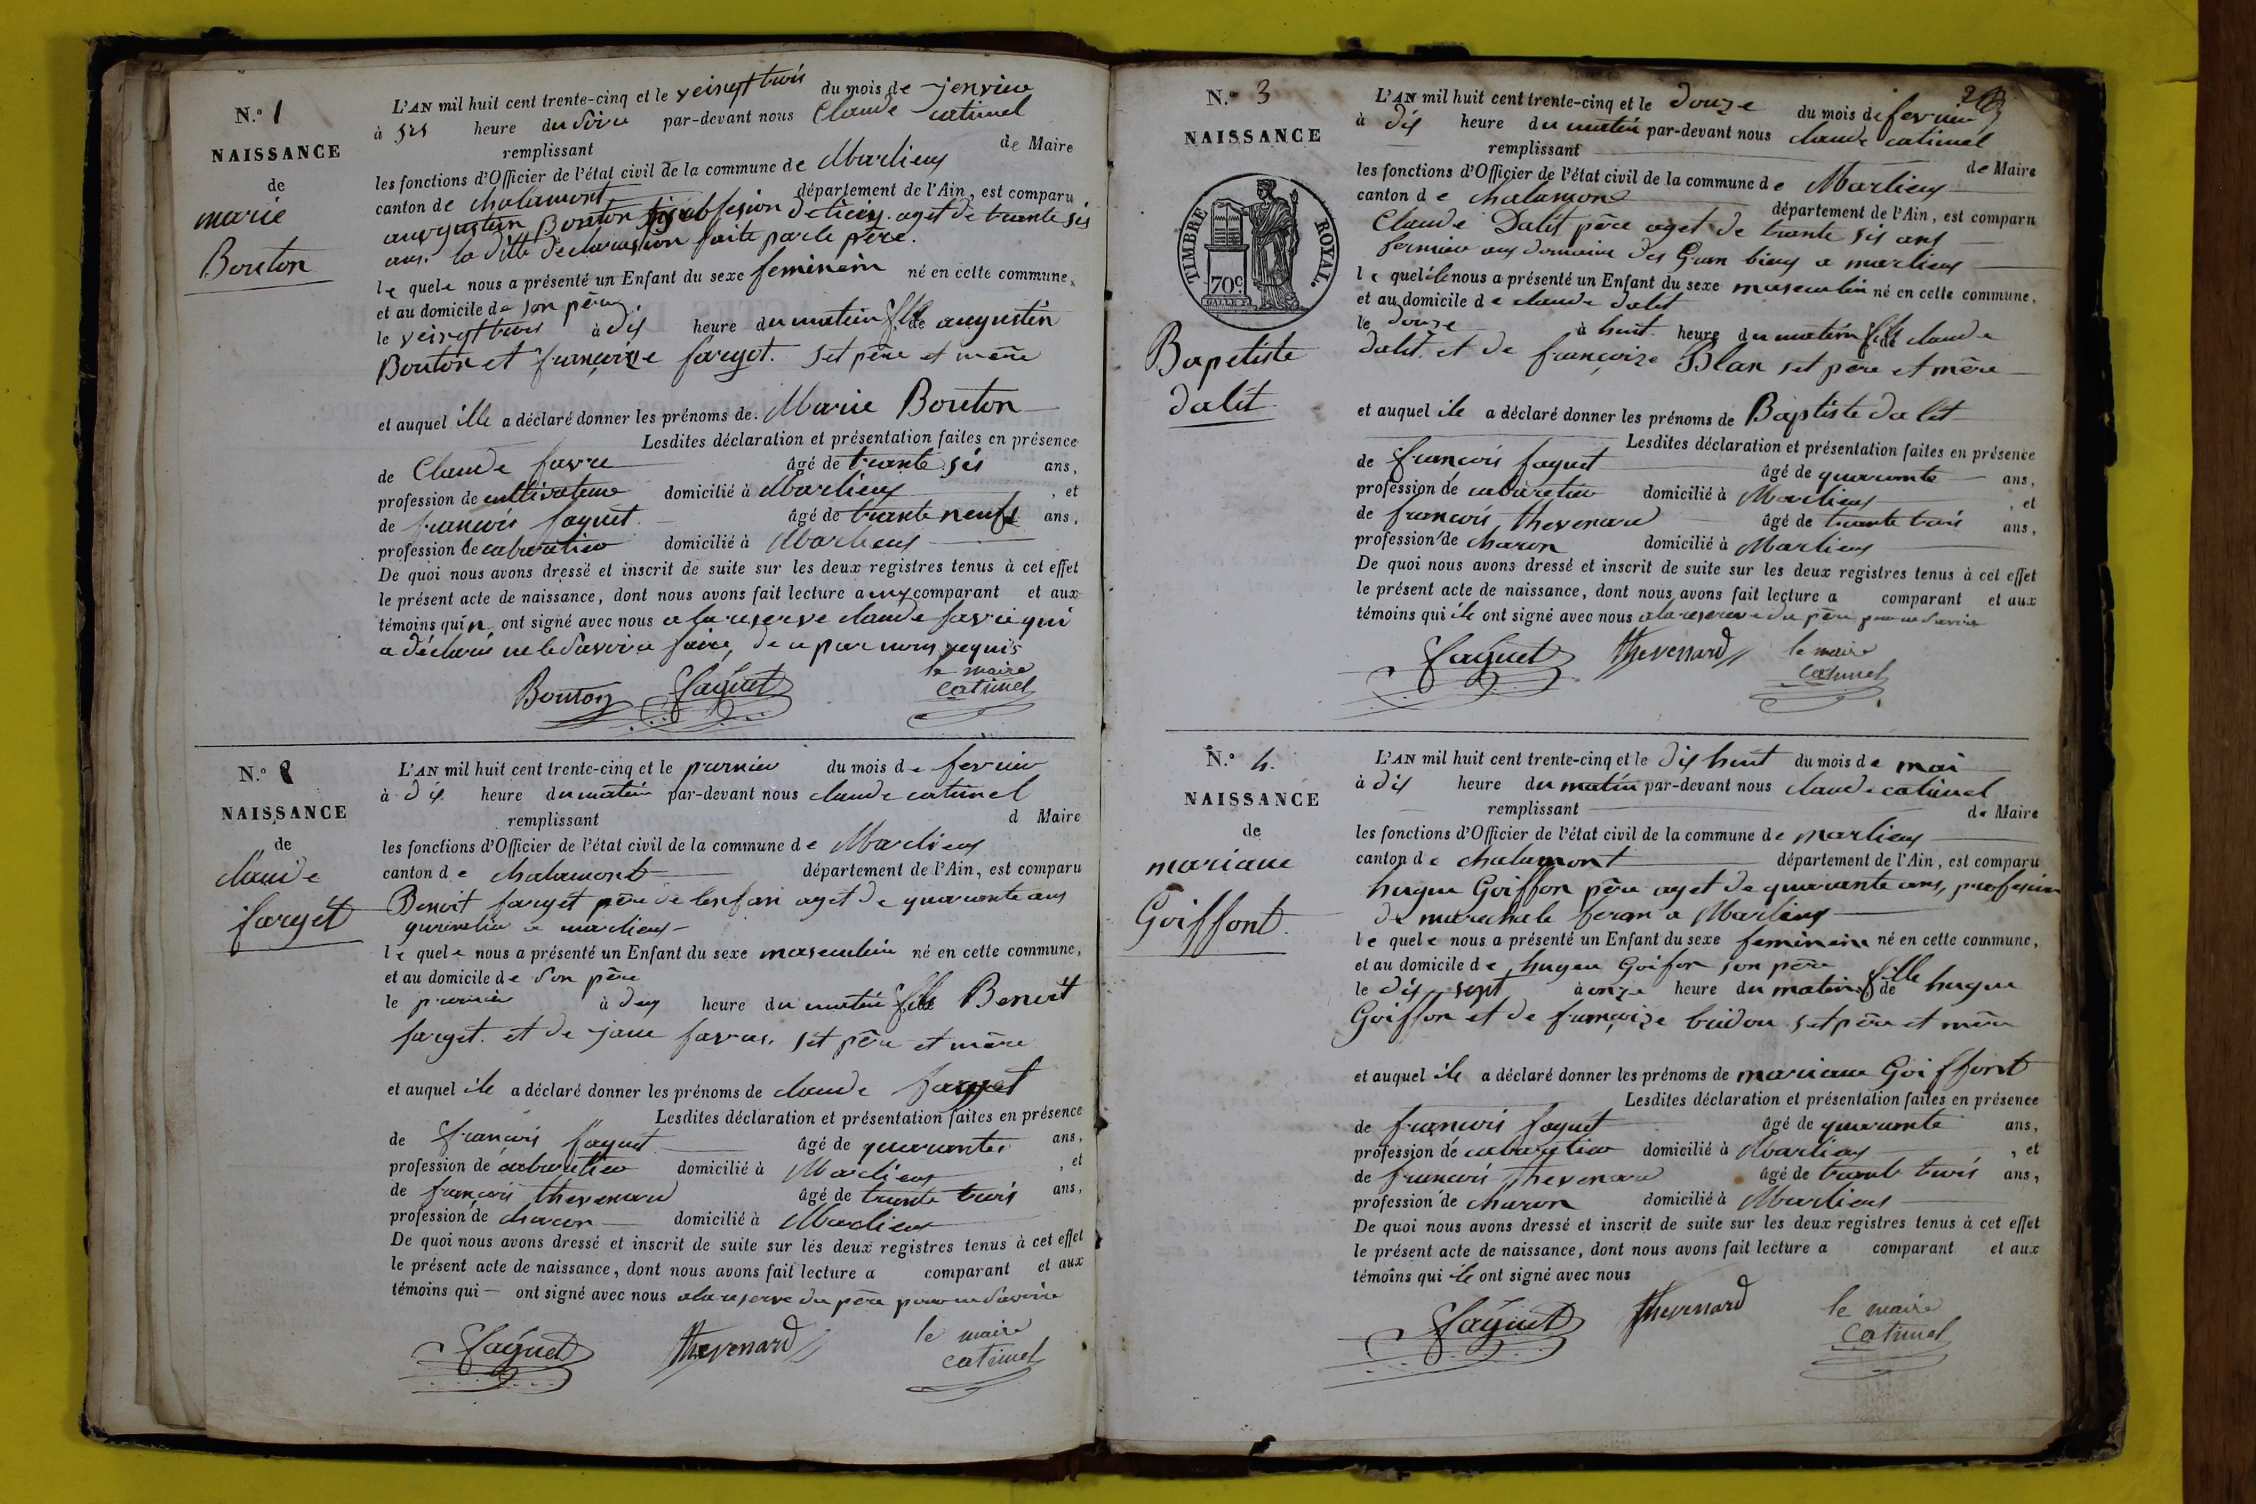 N.º 1
NAISSANCE
de
marie
Bouton
L'AN mil huit cent trente-cinq et le veingt trois du mois de jenvier
à sis heure du soire par-devant nous Claude catimel
remplissant de Maire
les fonctions d'Officier de l'état civil de la commune de Marlieux
canton de chalamont département de l'Ain, est comparu
augustin Bouton profession de aget de trante sis
ans. la ditte declaration faite par le père.
le quele nous a présenté un Enfant du sexe feminein né en cette commune,
et au domicile de son père
le veingt trois à dis heure du matin fille de augustin
Bouton et françoize farget. set père et mère
et auquel ille a déclaré donner les prénoms de. Marie Bouton
Lesdites déclaration et présentation faites en présence
de Claude favre âgé de trante sis ans,
profession de cultivateur domicilié à Marlieux, et
de françois faguet âgé de trante neuf ans,
profession de cabaretier domicilié à Marlieux
De quoi nous avons dressé et inscrit de suite sur les deux registres tenus à cet effet
le présent acte de naissance, dont nous avons fait lecture aux comparant et aux
témoins qui n ont signé avec nous a la reserve claude favre qui
a déclaré ne le savoire faire, de a par nous requis
Bouton Faguet le maire
catimel
N.º 2
NAISSANCE
de
claude
farget
L'AN mil huit cent trente-cinq et le premier du mois de fevrier
à dis heure du matin par-devant nous claude catimel
remplissant d Maire
les fonctions d'Officier de l'état civil de la commune de Marlieux
canton de chalamont département de l'Ain, est comparu
Benoit farget père de lenfan aget de quarante ans
a marlieux
le quele nous a présenté un Enfant du sexe masculin né en cette commune,
et au domicile de son père
le premier à deux heure du matin fils de Benoit
farget. et de jane favras. set père et mère
et auquel ile a déclaré donner les prénoms de claude farget
Lesdites déclaration et présentation faites en présence
de françois faguet âgé de quarante ans,
profession de cabaretier domicilié à Marlieux, et
de françois thevenard âgé de trante trois ans,
profession de charon domicilié à Marlieux
De quoi nous avons dressé et inscrit de suite sur les deux registres tenus à cet effet
le présent acte de naissance, dont nous avons fait lecture a comparant et aux
témoins qui — ont signé avec nous a la reserve du père pour ne savoire
Faguet thevenard le maire
catimel
2
N.º 3
NAISSANCE
TIMBRE ROYAL.
70c.
Bapetiste
dalit
L'AN mil huit cent trente-cinq et le douze du mois de fevrier
à dis heure du matin par-devant nous claude catimel
remplissant de Maire
les fonctions d'Officier de l'état civil de la commune de Marlieux
canton de chalamont département de l'Ain, est comparu
Claude Dalit père aget de trante sis ans
fermier aux domaine des Gran bieux a marlieux
le quel ile nous a présenté un Enfant du sexe masculin né en cette commune,
et au domicile de claude dalit
le douze à huit heure du matin fils de claude
dalit. et de françoize Blan set père et mère
et auquel ile a déclaré donner les prénoms de Baptiste dalit
Lesdites déclaration et présentation faites en présence
de françois faguet âgé de quarante ans,
profession de cabaretier domicilié à Marlieux, et
de françois thevenard âgé de trante trois ans,
profession de charon domicilié à Marlieux
De quoi nous avons dressé et inscrit de suite sur les deux registres tenus à cet effet
le présent acte de naissance, dont nous avons fait lecture a comparant et aux
témoins qui ile ont signé avec nous a la reserve du père pour ne savoire
Faguet thevenard le maire
catimel
N.º 4.
NAISSANCE
de
mariane
Goiffont.
L'AN mil huit cent trente-cinq et le dis huit du mois de mai
à dis heure du matin par-devant nous claude catimel
remplissant de Maire
les fonctions d'Officier de l'état civil de la commune de marlieux
canton de chalamont département de l'Ain, est comparu
hugue Goiffon père aget de quarante ans, profession
de marechale feran a Marlieux
le quele nous a présenté un Enfant du sexe feminein né en cette commune,
et au domicile de hugue Goifon son père
le dis sept à onze heure du matin fille de hugue
Goiffon et de françoize bridon set père et mère
et auquel ile a déclaré donner les prénoms de mariane Goiffont
Lesdites déclaration et présentation faites en présence
de françois faguet âgé de quarante ans,
profession de cabaretier domicilié à Marlieux, et
de françois thevenard âgé de trante trois ans,
profession de charon domicilié à Marlieux
De quoi nous avons dressé et inscrit de suite sur les deux registres tenus à cet effet
le présent acte de naissance, dont nous avons fait lecture a comparant et aux
témoins qui ile ont signé avec nous
Faguet thevenard le maire
catimel